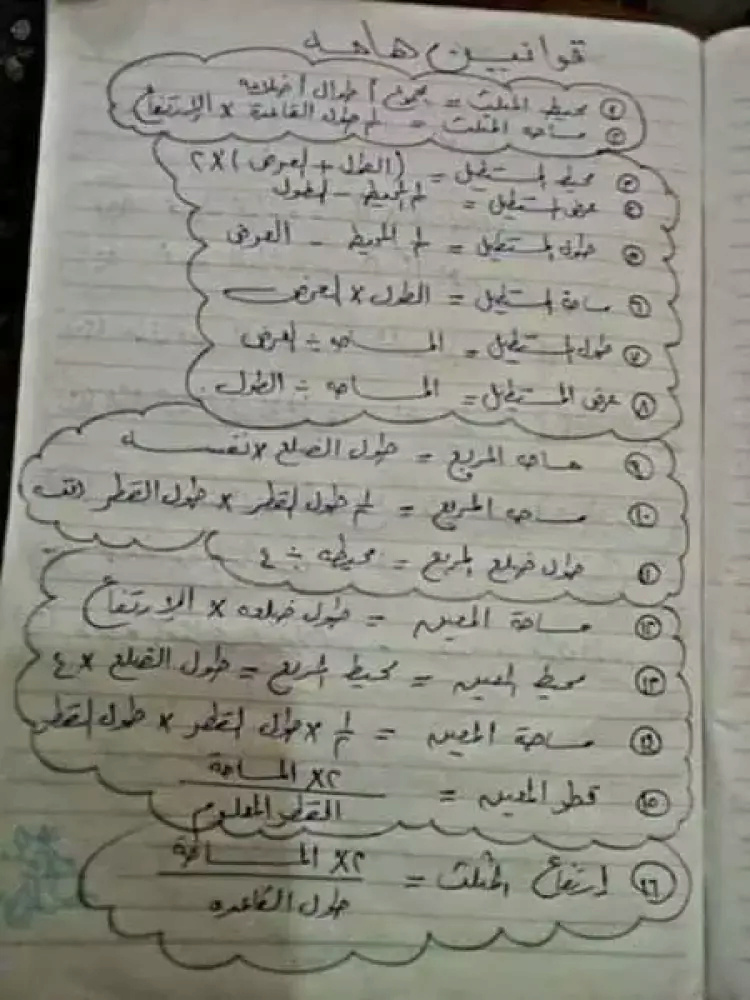 قوانين هامه
① محيط المثلث = مجموع أطوال أضلاعه
② مساحه المثلث = ½ طول القاعدة × الإرتفاع
③ محيط المستطيل = (الطول + العرض) × ٢
④ عرض المستطيل = ½ المحيط - الطول
⑤ طول المستطيل = ½ المحيط - العرض
⑥ مساحة المستطيل = الطول × العرض
⑦ طول المستطيل = المساحه ÷ العرض
⑧ عرض المستطيل = المساحه ÷ الطول
⑨ مساحه المربع = طول الضلع × نفسه
⑩ مساحه المربع = ½ طول القطر × طول القطر
⑪ طول ضلع المربع = محيطه ÷ ٤
⑫ مساحة المعين = طول ضلعه × الإرتفاع
⑬ محيط المعين = محيط المربع = طول الضلع × ٤
⑭ مساحة المعين = ½ × طول القطر × طول القطر
⑮ قطر المعين = ٢× المساحة
القطر المعلوم
⑯ إرتفاع المثلث = ٢× المساحة
طول القاعده